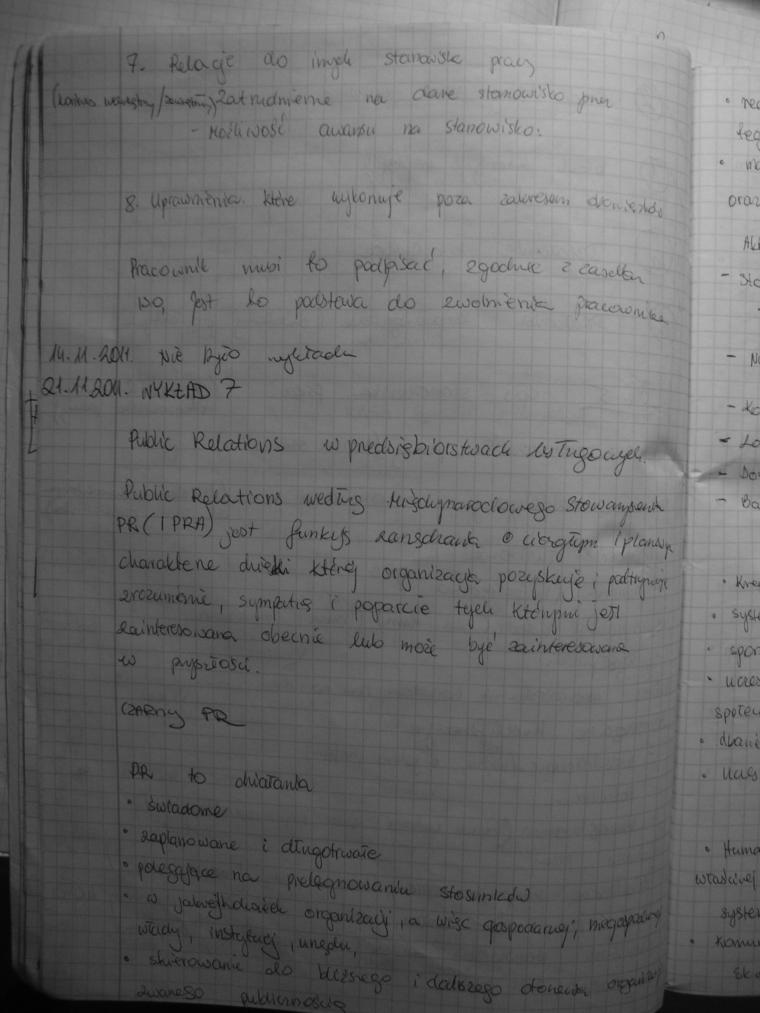 7. Relacje do innych stanowisk pracy
zatrudnienie na dane stanowisko przez
- Możliwość awansu na stanowisko:
8. Uprawnienia które wykonuje poza zakresem
Pracownik musi to podpisać, zgodnie z
ISO, jest to podstawa do zwolnienia pracownika
14.11.2011. Nie było wykładu
21.11.2011. WYKŁAD 7
Public Relations w przedsiębiorstwach usługowych.
Public Relations według Międzynarodowego Stowarzyszenia
PR (IPRA) jest funkcją zarządzania o ciągłym i planowym
charakterze dzięki której organizacja pozyskuje i podtrzymuje
zrozumienie, sympatię i poparcie tych którymi jest
zainteresowana obecnie lub może być zainteresowana
w przyszłości.
CZARNY PR
PR to działania
• świadome
• zaplanowane i długotrwałe
• polegające na pielęgnowaniu stosunków
• w organizacji, a więc gospodarczej, niegospodarczej
władzy, instytucji, urzędu,
• skierowanie do bliższego i dalszego otoczenia organizacji
zwanego publicznością
oraz
• syst
• spor
• ucze
społec
• dbanie
• Huma
właściwej
syste
• komu